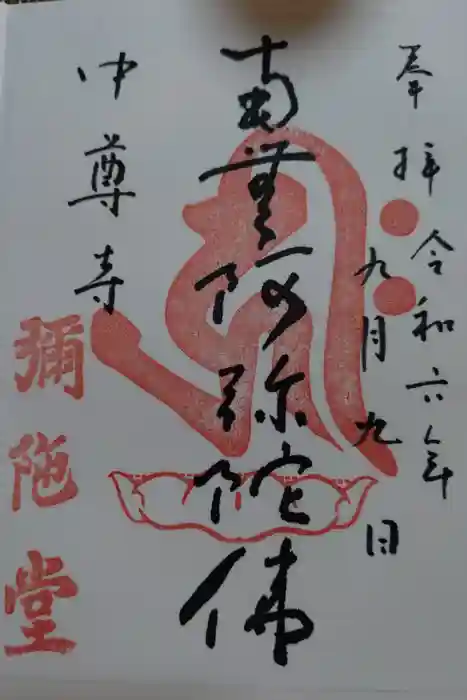 奉拝
令和六年
九月九日
南無阿弥陀佛
中尊寺
彌陁堂